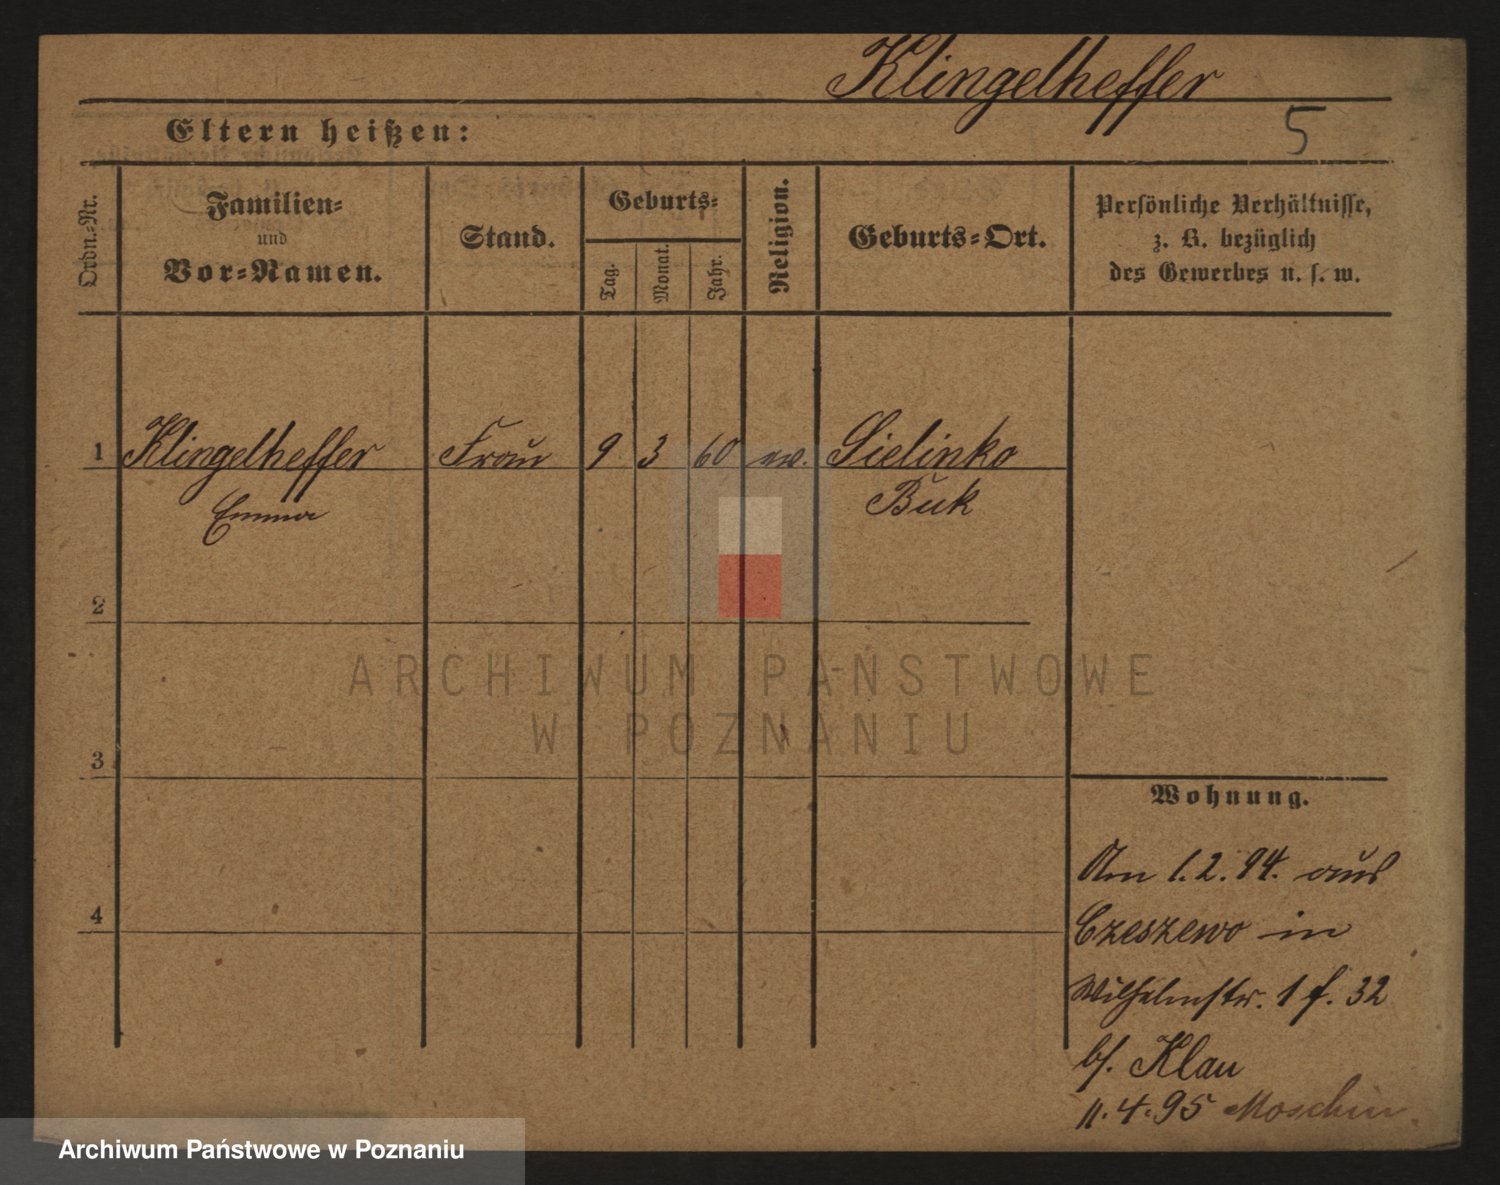 Klingelheffer
5
Eltern heißen:
Ordn.-Nr.
Familien-
und
Vor-Namen.
Stand.
Geburts-
Tag.
Monat.
Jahr.
Religion.
Geburts-Ort.
Persönliche Verhältnisse,
z. B. bezüglich
des Gewerbes u. s. w.
1 Klingelheffer Frau 9 3 60 ev. Sielinko
Emma Buk
2
3
4
Wohnung.
Am 1.2.94. aus
Czeszewo in
Wilhelmstr. 1 f. 32
b/. Klau
11.4.95 Moschin
ARCHIWUM PAŃSTWOWE
W POZNANIU
Archiwum Państwowe w Poznaniu